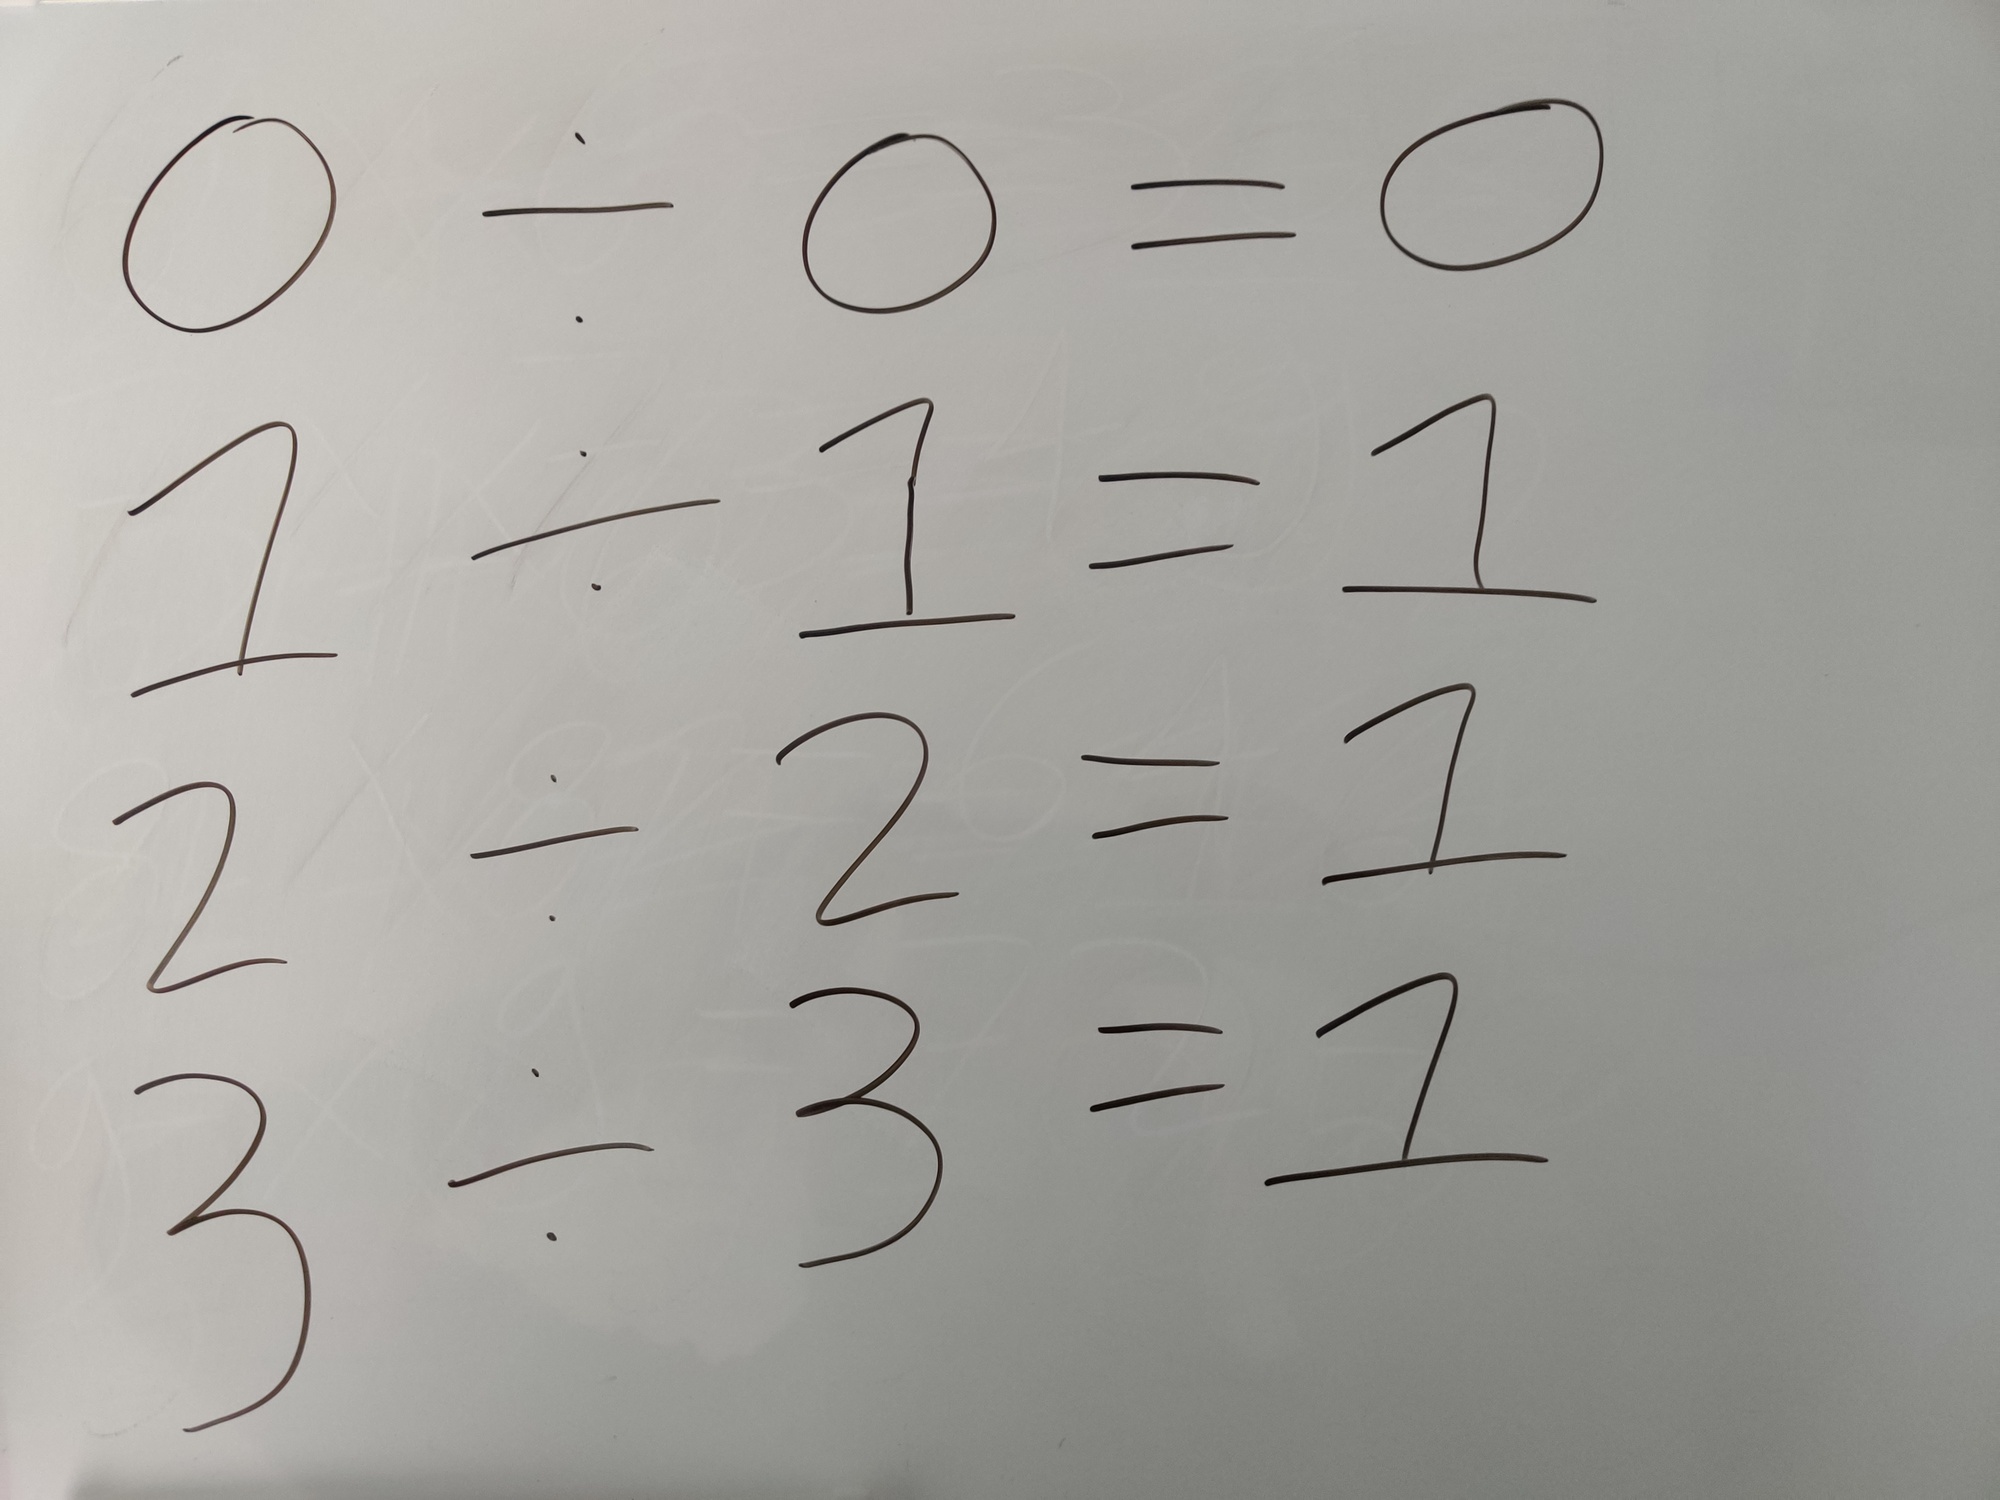 0 ÷ 0 = 0
1 ÷ 1 = 1
2 ÷ 2 = 1
3 ÷ 3 = 1